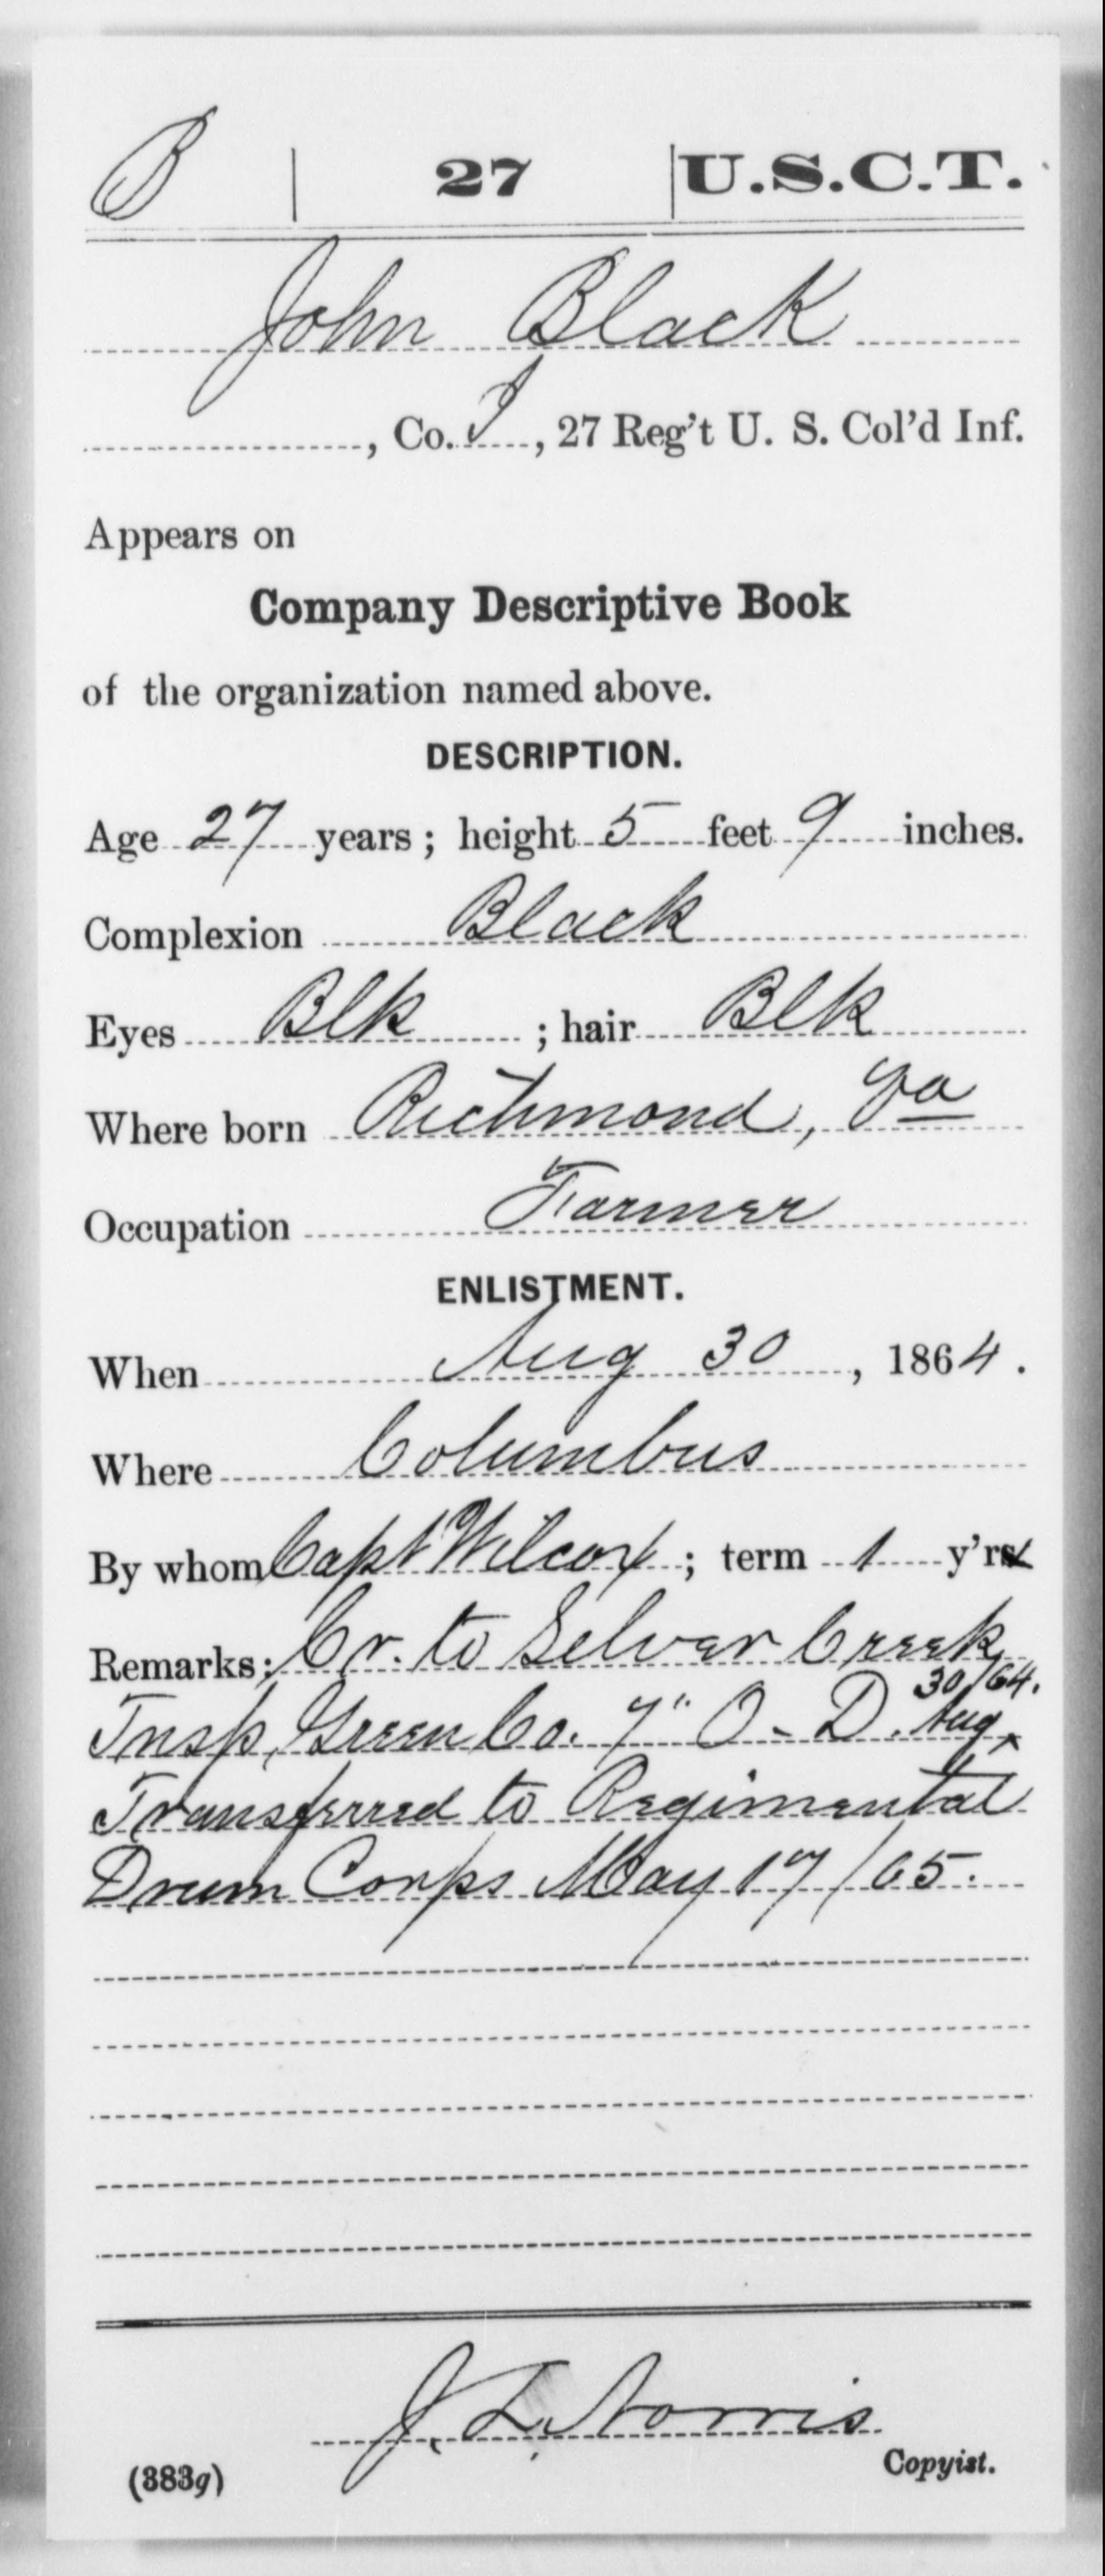 B | 27 | U.S.C.T.
John Black
, Co. I, 27 Reg't U. S. Col'd Inf.
Appears on
Company Descriptive Book
of the organization named above.
DESCRIPTION.
Age 27 years; height 5 feet 9 inches.
Complexion Black
Eyes Blk ; hair Blk
Where born Richmond, Va
Occupation Farmer
ENLISTMENT.
When Aug 30, 1864.
Where Columbus
By whom Capt Wilcox; term 1 y'rs
Remarks: Cr. to Silver Creek
Tnsp, Green Co. 7" O - D. Aug 30/64.
Transferred to Regimental
Drum Corps May 17/65.
J. L. Norris
(383g) Copyist.